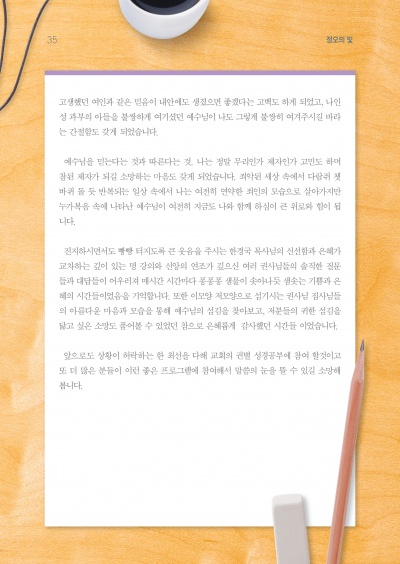 35
정오의 빛
고생했던 여인과 같은 믿음이 내안에도 생겼으면 좋겠다는 고백도 하게 되었고, 나인
성 과부의 아들을 불쌍하게 여기셨던 예수님이 나도 그렇게 불쌍히 여겨주시길 바라
는 간절함도 갖게 되었습니다.
예수님을 믿는다는 것과 따른다는 것, 나는 정말 무리인가 제자인가 고민도 하며
참된 제자가 되길 소망하는 마음도 갖게 되었습니다. 죄악된 세상 속에서 다람쥐 쳇
바퀴 돌 듯 반복되는 일상 속에서 나는 여전히 연약한 죄인의 모습으로 살아가지만
누가복음 속에 나타난 예수님이 여전히 지금도 나와 함께 하심이 큰 위로와 힘이 됩
니다.
진지하시면서도 빵빵 터지도록 큰 웃음을 주시는 한경국 목사님의 신선함과 은혜가
교차하는 깊이 있는 명 강의와 신앙의 연조가 깊으신 여러 권사님들의 솔직한 질문
들과 대답들이 어우러져 매시간 시간마다 퐁퐁퐁 샘물이 솟아나듯 샘솟는 기쁨과 은
혜의 시간들이었음을 기억합니다. 또한 이모양 저모양으로 섬기시는 권사님 집사님들
의 아름다운 마음과 모습을 통해 예수님의 섬김을 찾아보고, 저분들의 귀한 섬김을
닮고 싶은 소망도 품어볼 수 있었던 참으로 은혜롭게 감사했던 시간들 이었습니다.
앞으로도 상황이 허락하는 한 최선을 다해 교회의 권별 성경공부에 참여 할것이고
또 더 많은 분들이 이런 좋은 프로그램에 참여해서 말씀의 눈을 뜰 수 있길 소망해
봅니다.